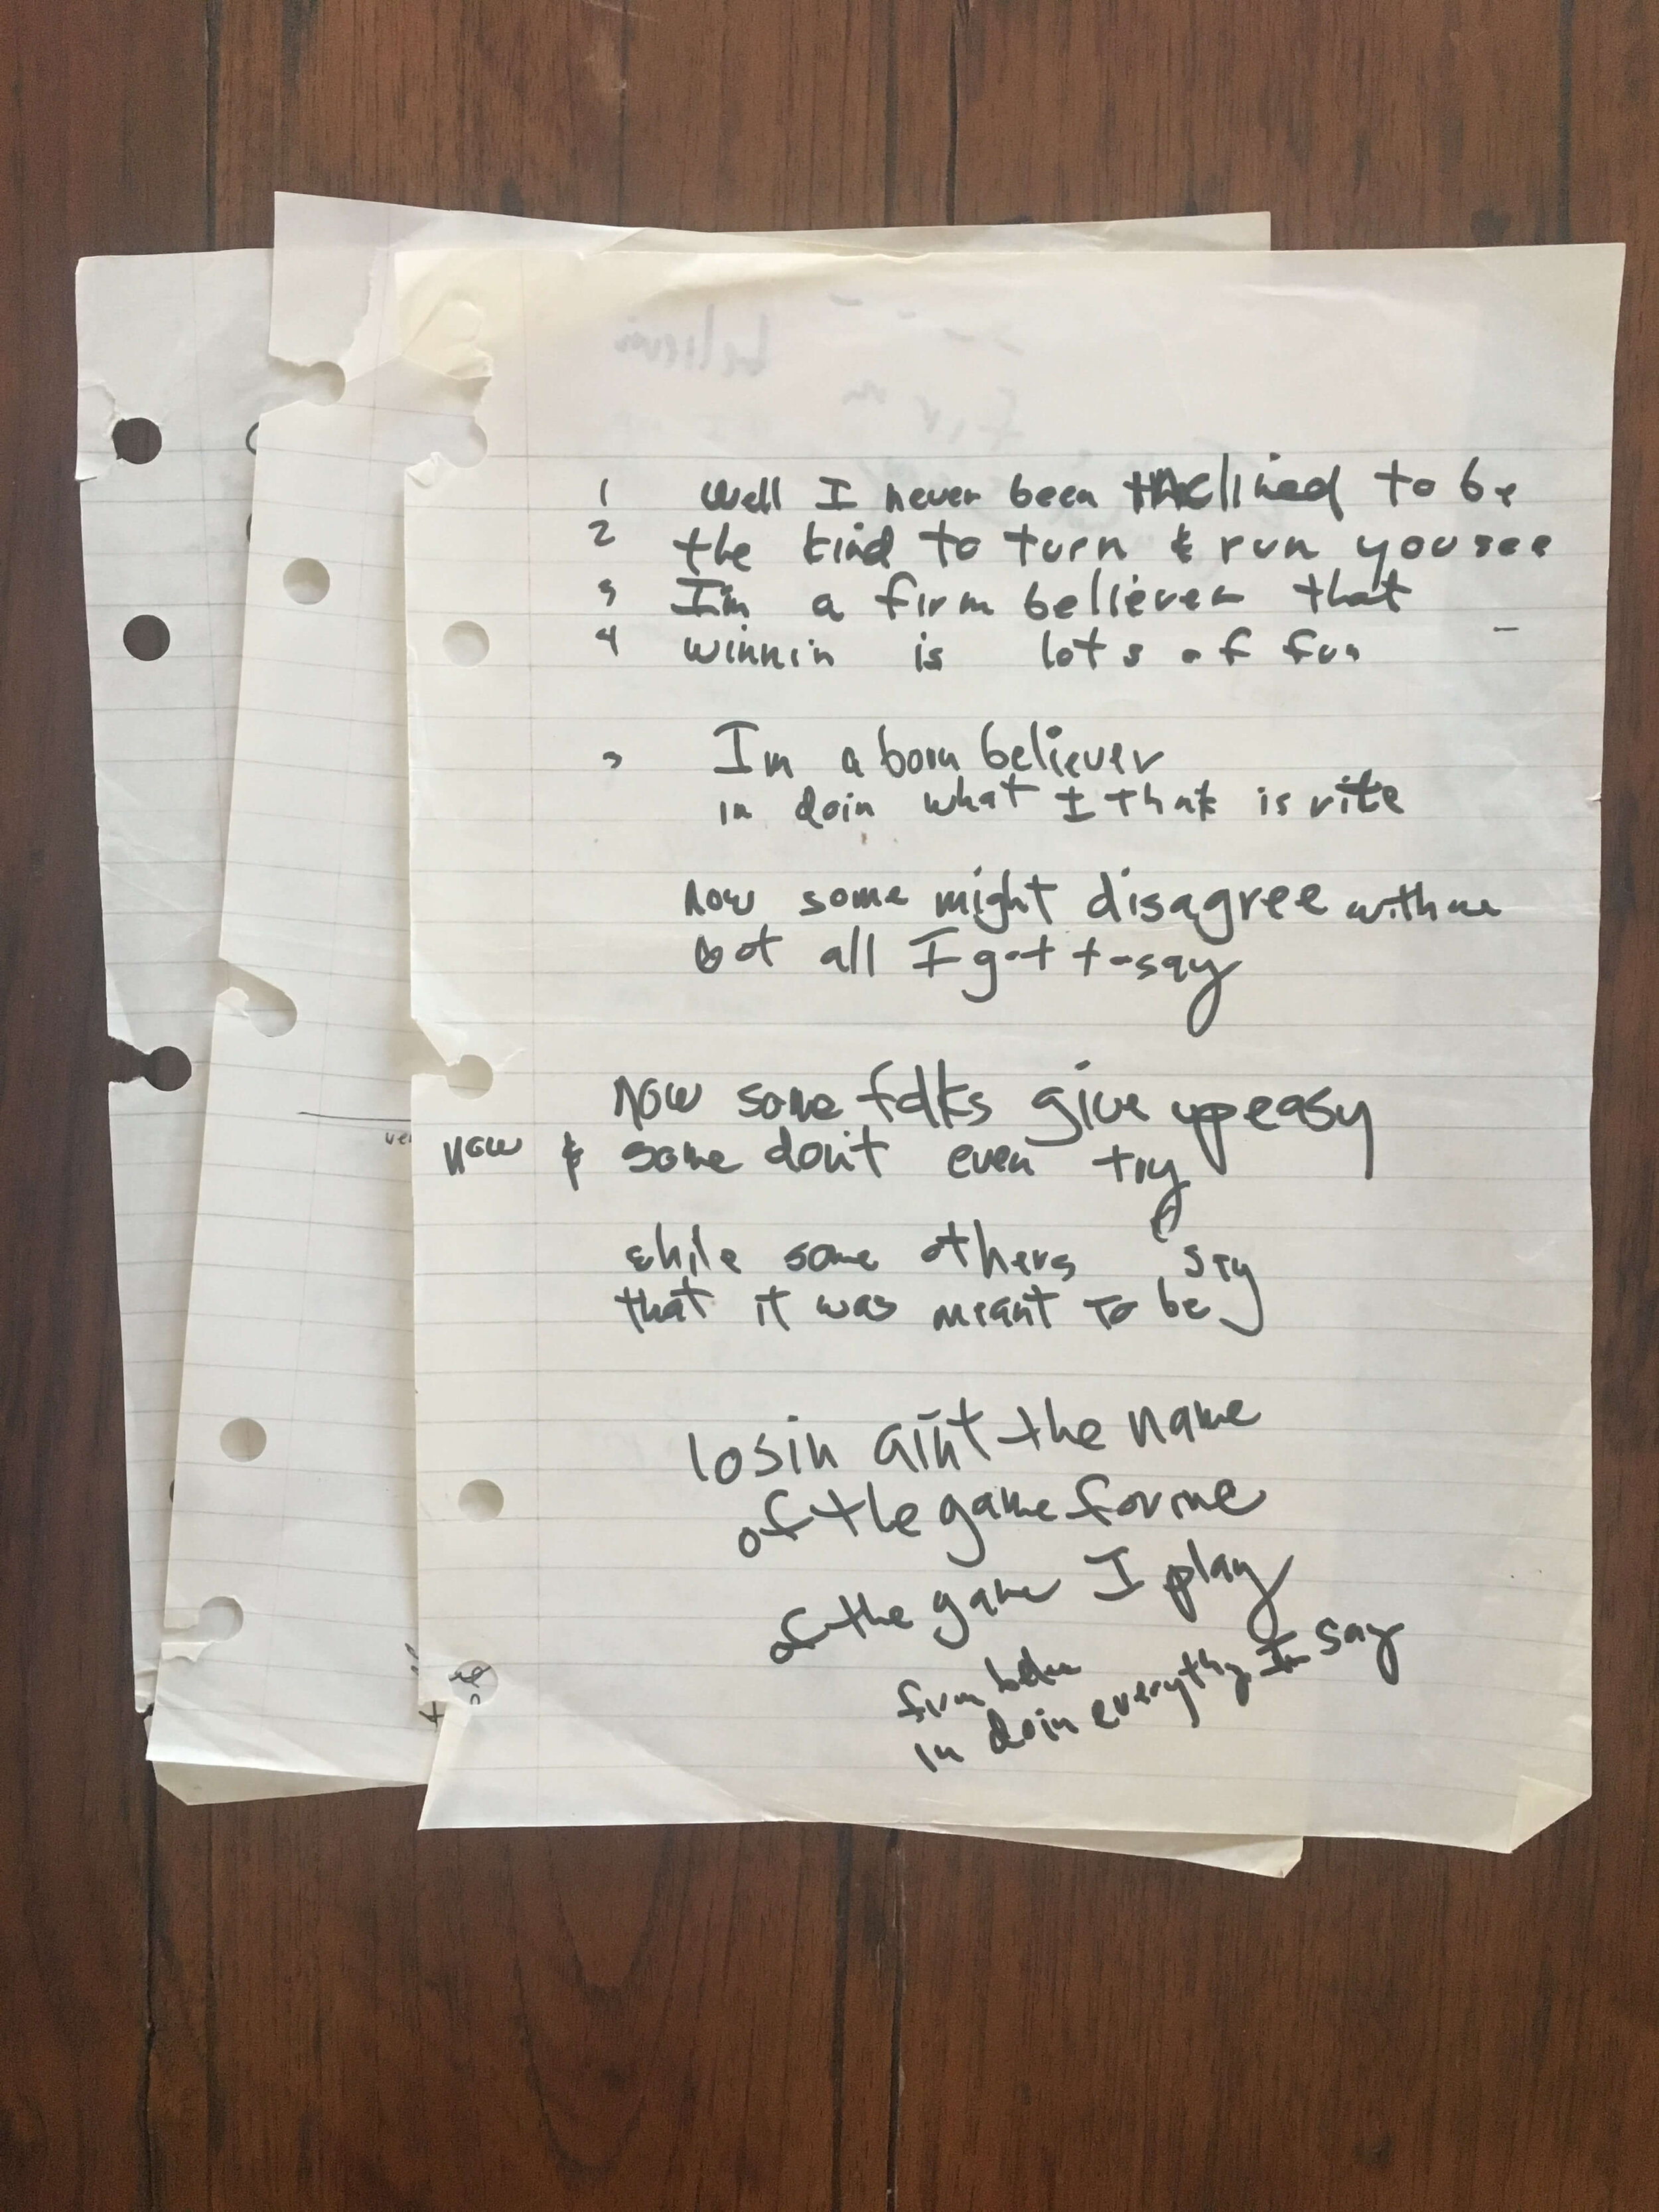 1 Well I never been inclined to be
2 the kind to turn & run you see
3 I'm a firm believer that
4 winnin is lots of fun
I'm a born believer
in doin what I think is rite
now some might disagree with me
but all I got to say
Now some folks give up easy
now & some don't even try
while some others say
that it was meant to be
losin ain't the name
of the game for me
of the game I play
firm
in doin everything I say